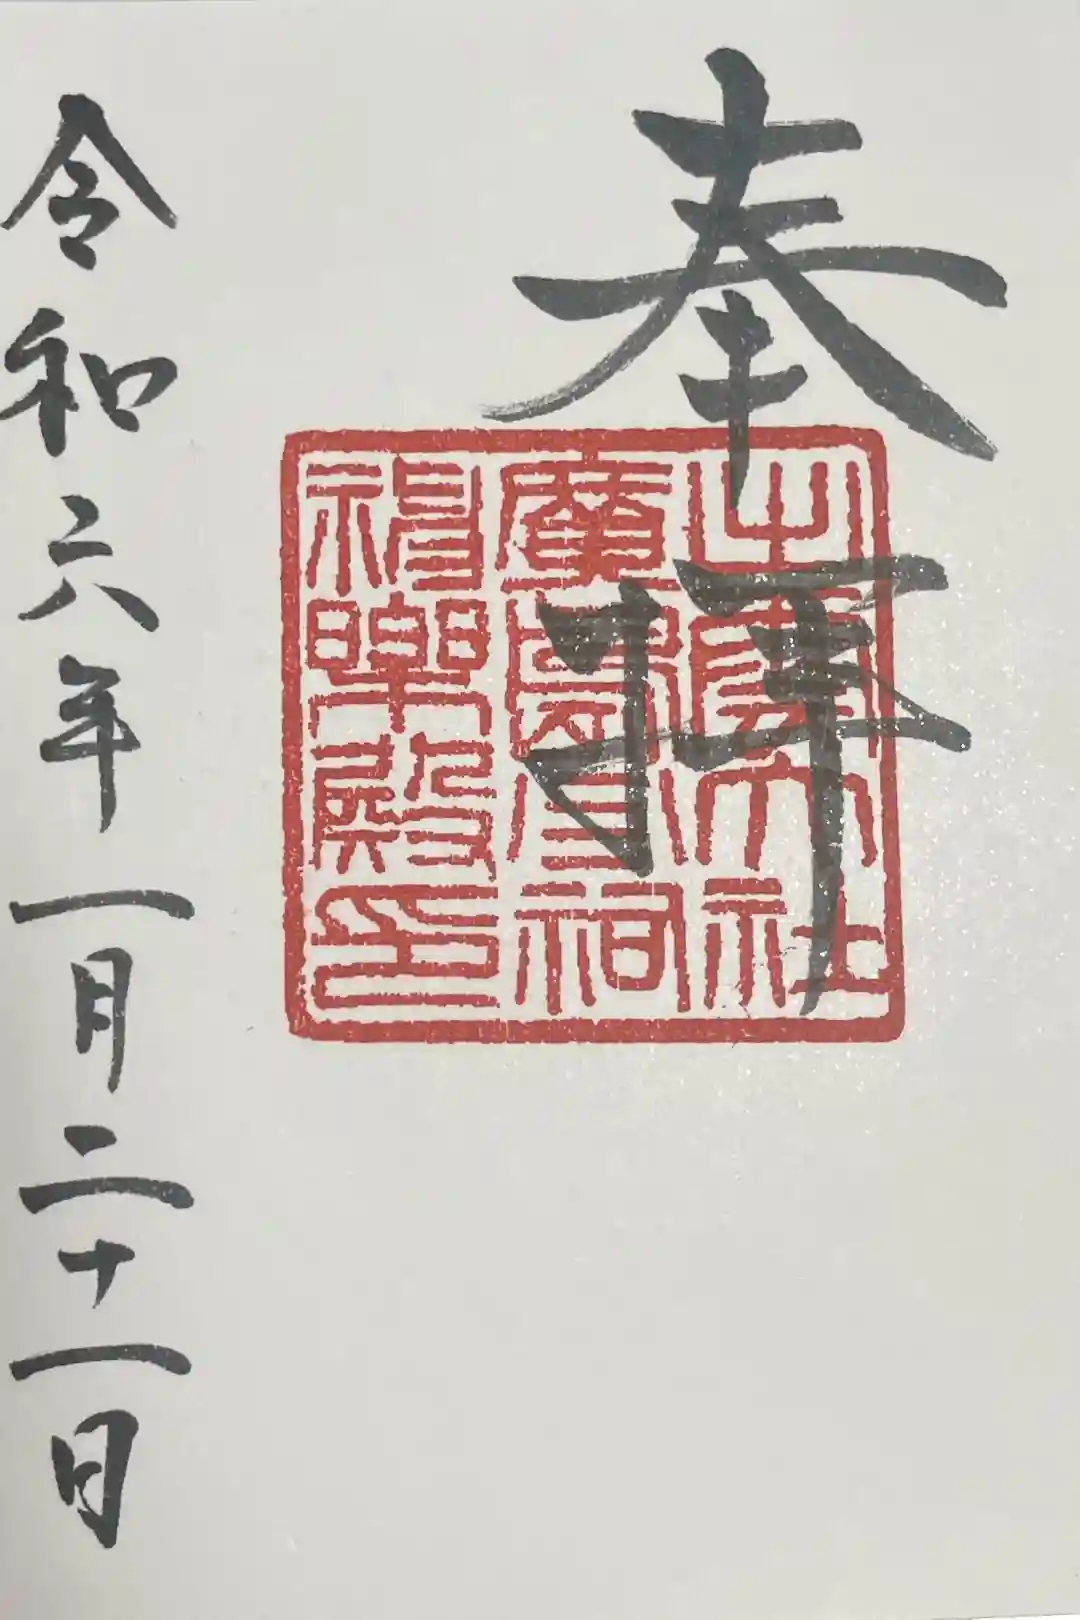 奉拝
出雲大社
神楽殿印
令和六年一月二十一日